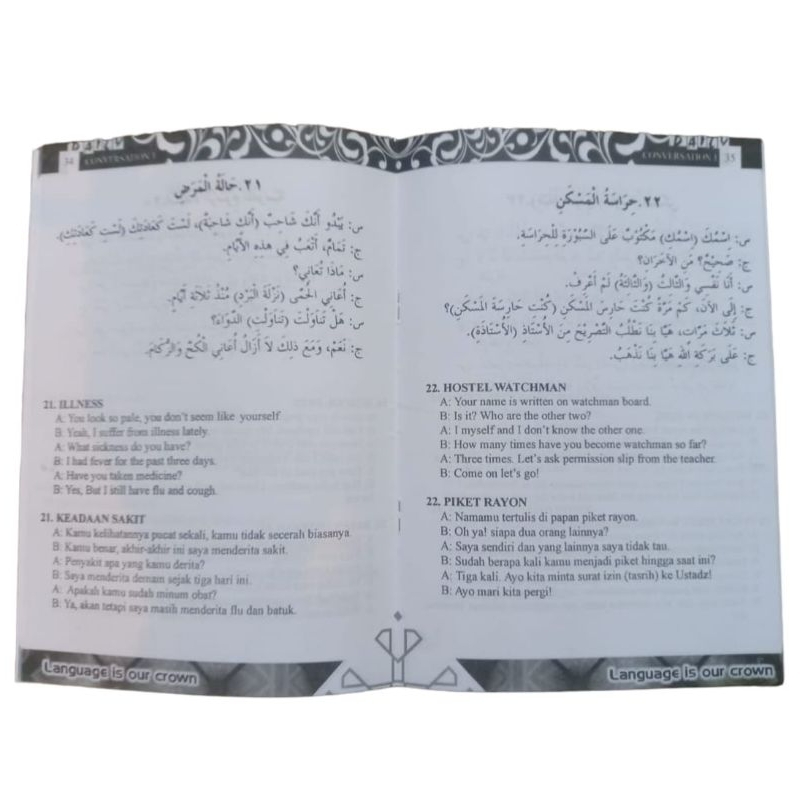 34 CONVERSATION 1
٢١. حَالَةُ الْمَرَضِ
س: يَبْدُو أَنَّكَ شَاحِبٌ (أَنَّكِ شَاحِبَةٌ)، لَسْتَ كَعَادَتِكَ (لَسْتِ كَعَادَتِكِ).
ج: تَمَامٌ، أَتْعَبُ فِي هَذِهِ الْأَيَّامِ.
س: مَاذَا تُعَانِي؟
ج: أُعَانِي الْحُمَّى (نَزْلَةَ الْبَرْدِ) مُنْذُ ثَلَاثَةِ أَيَّامٍ.
س: هَلْ تَنَاوَلْتَ (تَنَاوَلْتِ) الدَّوَاءَ؟
ج: نَعَمْ، وَمَعَ ذَلِكَ لَا أَزَالُ أُعَانِي الْكُحَّ وَالزُّكَامَ.
21. ILLNESS
A: You look so pale, you don't seem like yourself
B: Yeah, I suffer from illness lately.
A: What sickness do you have?
B: I had fever for the past three days.
A: Have you taken medicine?
B: Yes, But I still have flu and cough.
21. KEADAAN SAKIT
A: Kamu kelihatannya pucat sekali, kamu tidak secerah biasanya.
B: Kamu benar, akhir-akhir ini saya menderita sakit.
A: Penyakit apa yang kamu derita?
B: Saya menderita demam sejak tiga hari ini.
A: Apakah kamu sudah minum obat?
B: Ya, akan tetapi saya masih menderita flu dan batuk.
Language is our crown
CONVERSATION 1 35
٢٢. حِرَاسَةُ الْمَسْكَنِ
س: اِسْمُكَ (اِسْمُكِ) مَكْتُوبٌ عَلَى السَّبُّوْرَةِ لِلْحِرَاسَةِ.
ج: صَحِيْحٌ؟ مَنِ الْآخَرَانِ؟
س: أَنَا نَفْسِي وَالثَّالِثُ (وَالثَّالِثَةُ) لَمْ أَعْرِفْ.
ج: إِلَى الْآنَ، كَمْ مَرَّةً كُنْتَ حَارِسَ الْمَسْكَنِ (كُنْتِ حَارِسَةَ الْمَسْكَنِ)؟
س: ثَلَاثَ مَرَّاتٍ، هَيَّا بِنَا نَطْلُبُ التَّصْرِيْحَ مِنَ الْأُسْتَاذِ (الْأُسْتَاذَةِ).
ج: عَلَى بَرَكَةِ اللهِ هَيَّا بِنَا نَذْهَبُ.
22. HOSTEL WATCHMAN
A: Your name is written on watchman board.
B: Is it? Who are the other two?
A: I myself and I don't know the other one.
B: How many times have you become watchman so far?
A: Three times. Let's ask permission slip from the teacher.
B: Come on let's go!
22. PIKET RAYON
A: Namamu tertulis di papan piket rayon.
B: Oh ya! siapa dua orang lainnya?
A: Saya sendiri dan yang lainnya saya tidak tau.
B: Sudah berapa kali kamu menjadi piket hingga saat ini?
A: Tiga kali. Ayo kita minta surat izin (tasrih) ke Ustadz!
B: Ayo mari kita pergi!
Language is our crown